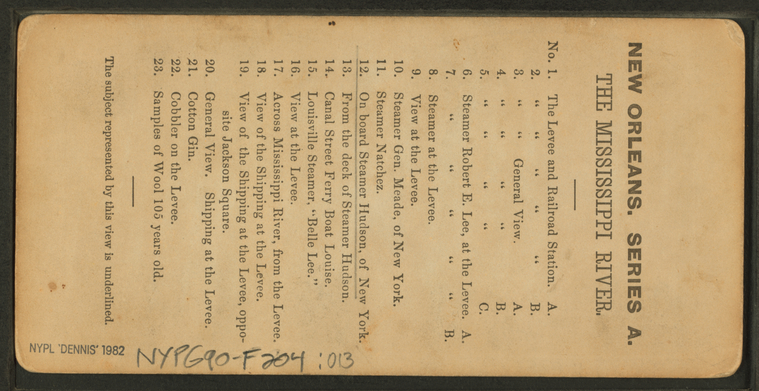 NEW ORLEANS. SERIES A.
THE MISSISSIPPI RIVER.
No. 1. The Levee and Railroad Station. A.
2. " " " " " B.
3. " " General View. A.
4. " " " " B.
5. " " " " C.
6. Steamer Robert E. Lee, at the Levee. A.
7. " " " " " B.
8. Steamer at the Levee.
9. View at the Levee.
10. Steamer Gen. Meade, of New York.
11. Steamer Natchez.
12. On board Steamer Hudson, of New York.
13. From the deck of Steamer Hudson.
14. Canal Street Ferry Boat Louise.
15. Louisville Steamer, "Belle Lee."
16. View at the Levee.
17. Across Mississippi River, from the Levee.
18. View of the Shipping at the Levee.
19. View of the Shipping at the Levee, oppo-
site Jackson Square.
20. General View. Shipping at the Levee.
21. Cotton Gin.
22. Cobbler on the Levee.
23. Samples of Wool 105 years old.
The subject represented by this view is underlined.
NYPL 'DENNIS' 1982
NYPG90-F204 :013